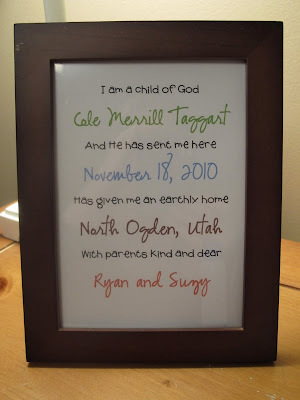 I am a child of God
Cole Merrill Taggart
And He has sent me here
November 18, 2010
Has given me an earthly home
North Ogden, Utah
With parents kind and dear
Ryan and Suzy